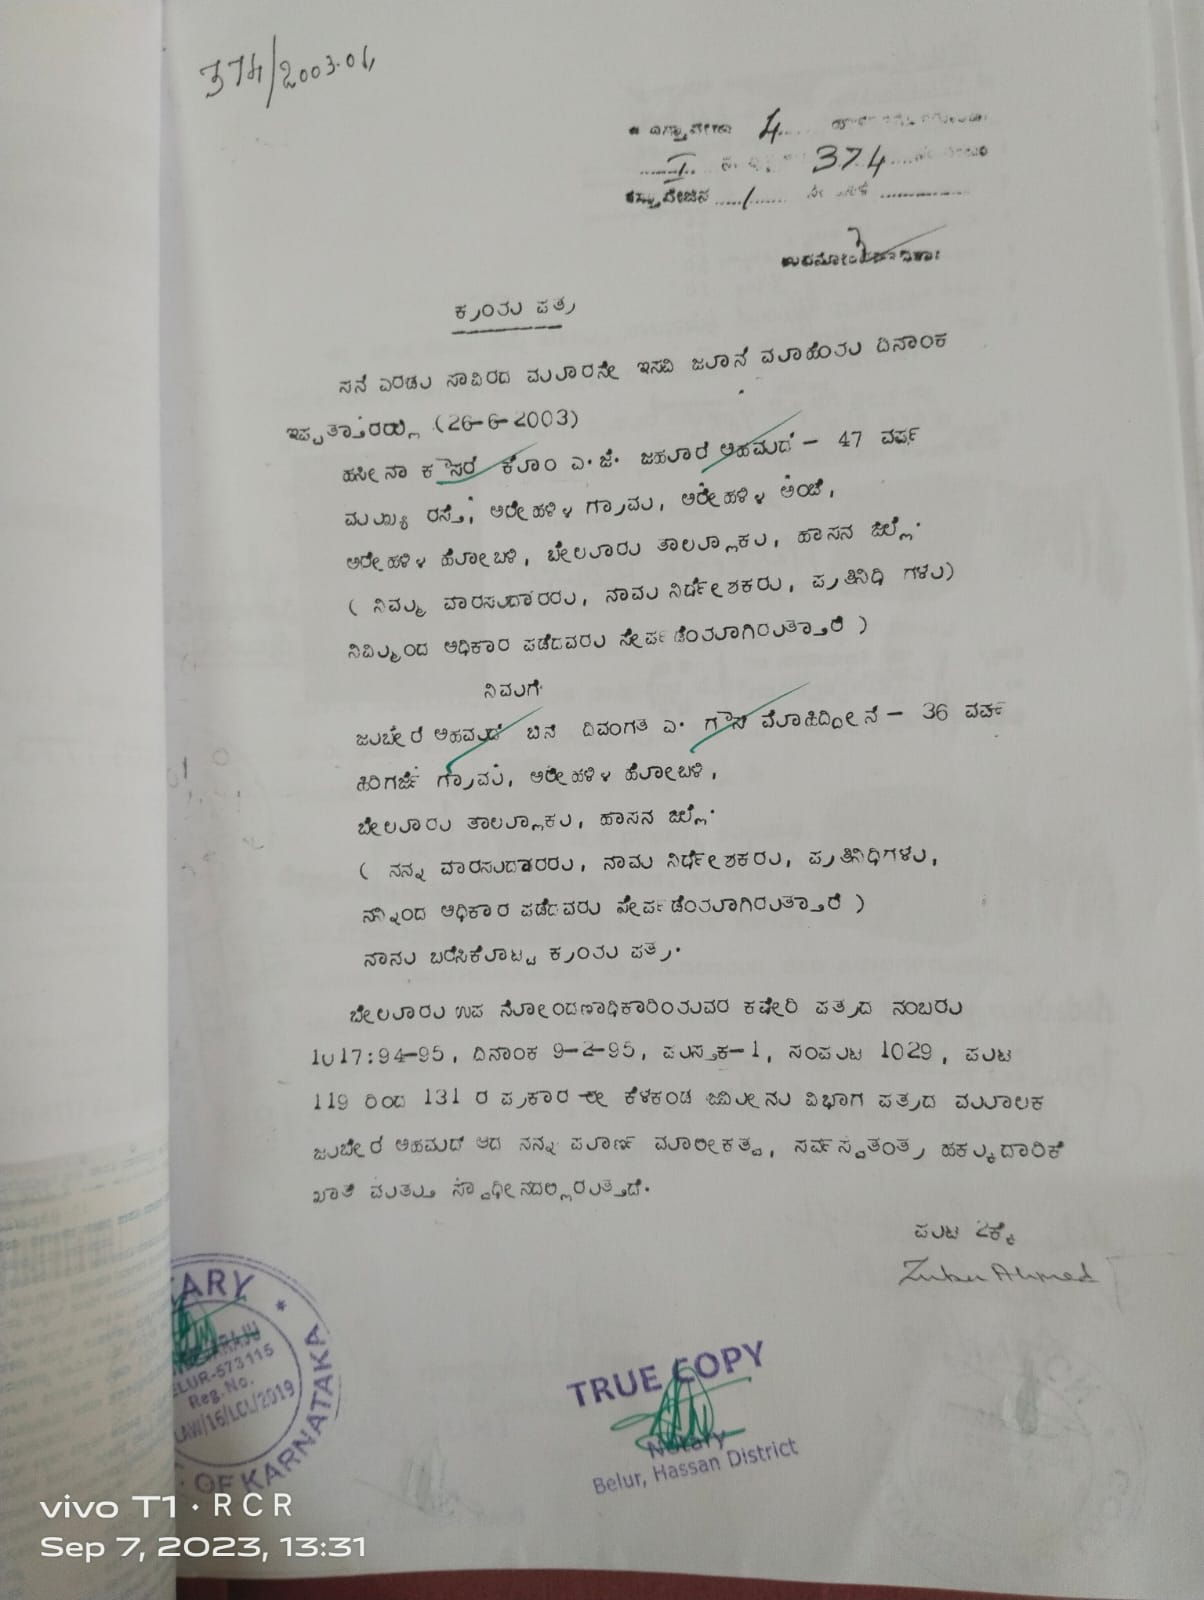 374/2003-04
ಈ ದಸ್ತಾವೇಜು 4
I 374
ದಸ್ತಾವೇಜಿನ 1 ನೇ ಹಾಳೆ
ಕ್ರಯ ಪತ್ರ
ಸನೆ ಎರಡು ಸಾವಿರದ ಮೂರನೇ ಇಸವಿ ಜೂನ್ ಮಾಹೆಯ ದಿನಾಂಕ
ಇಪ್ಪತ್ತಾರರಲ್ಲಿ (26-6-2003)
ಹಸೀನಾ ಕೌಸರ್ ಕೋಂ ಎ.ಜೆ. ಜಹೂರ್ ಅಹಮದ್ - 47 ವರ್ಷ
ಮುಖ್ಯ ರಸ್ತೆ, ಅರೇಹಳ್ಳಿ ಗ್ರಾಮ, ಅರೇಹಳ್ಳಿ ಅಂಚೆ,
ಅರೇಹಳ್ಳಿ ಹೋಬಳಿ, ಬೇಲೂರು ತಾಲ್ಲೂಕು, ಹಾಸನ ಜಿಲ್ಲೆ.
( ನಿಮ್ಮ ವಾರಸುದಾರರು, ನಾಮ ನಿರ್ದೇಶಕರು, ಪ್ರತಿನಿಧಿ ಗಳು)
ನಿಮ್ಮಿಂದ ಅಧಿಕಾರ ಪಡೆದವರು ಸೇರ್ಪಡೆಯಾಗಿರುತ್ತಾರೆ )
ನಿಮಗೆ
ಜುಬೇರ್ ಅಹಮದ್ ಬಿನ್ ದಿವಂಗತ ಎ. ಗೌಸ್ ಮೊಹಿದ್ದೀನ್ - 36 ವರ್ಷ
ಹಿರಿಗರ್ಜೆ ಗ್ರಾಮ, ಅರೇಹಳ್ಳಿ ಹೋಬಳಿ,
ಬೇಲೂರು ತಾಲ್ಲೂಕು, ಹಾಸನ ಜಿಲ್ಲೆ.
( ನನ್ನ ವಾರಸುದಾರರು, ನಾಮ ನಿರ್ದೇಶಕರು, ಪ್ರತಿನಿಧಿಗಳು,
ನನ್ನಿಂದ ಅಧಿಕಾರ ಪಡೆದವರು ಸೇರ್ಪಡೆಯಾಗಿರುತ್ತಾರೆ )
ನಾನು ಬರೆಸಿಕೊಟ್ಟ ಕ್ರಯ ಪತ್ರ.
ಬೇಲೂರು ಉಪ ನೋಂದಣಾಧಿಕಾರಿಯವರ ಕಛೇರಿ ಪತ್ರದ ನಂಬರು
1017:94-95, ದಿನಾಂಕ 9-2-95, ಪುಸ್ತಕ-1, ಸಂಪುಟ 1029, ಪುಟ
119 ರಿಂದ 131 ರ ಪ್ರಕಾರ ಈ ಕೆಳಕಂಡ ಜಮೀನು ವಿಭಾಗ ಪತ್ರದ ಮೂಲಕ
ಜುಬೇರ್ ಅಹಮದ್ ಆದ ನನ್ನ ಪೂರ್ಣ ಮಾಲೀಕತ್ವ, ಸರ್ವಸ್ವತಂತ್ರ ಹಕ್ಕುದಾರಿಕೆ
ಖಾತೆ ಮತ್ತು ಸ್ವಾಧೀನದಲ್ಲಿರುತ್ತದೆ.
ಪುಟ 2ಕ್ಕೆ
Zuber Ahmed
ARY
ELUR-573115
Reg. No.
LAW/16/LCL/2019
OF KARNATAKA
TRUE COPY
Notary
Belur, Hassan District
vivo T1 · R C R
Sep 7, 2023, 13:31